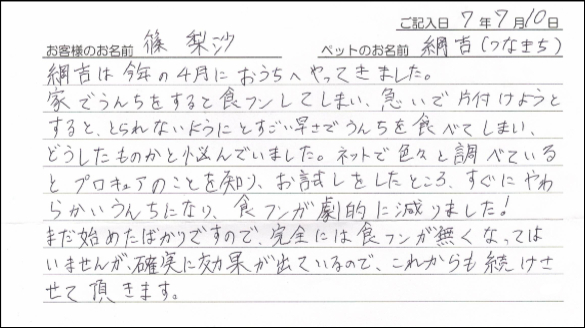 ご記入日 7年7月10日
お客様のお名前 篠 梨沙 ペットのお名前 綱吉(つなきち)
綱吉は今年の4月におうちへやってきました。
家でうんちをすると食フンしてしまい、急いで片付けようと
すると、とられないようにとすごい早さでうんちを食べてしまい、
どうしたものかと悩んでいました。ネットで色々と調べている
とプロキュアのことを知り、お試しをしたところ、すぐにやわ
らかいうんちになり、食フンが劇的に減りました!
まだ始めたばかりですので、完全には食フンが無くなっては
いませんが、確実に効果が出ているので、これからも続けさ
せて頂きます。